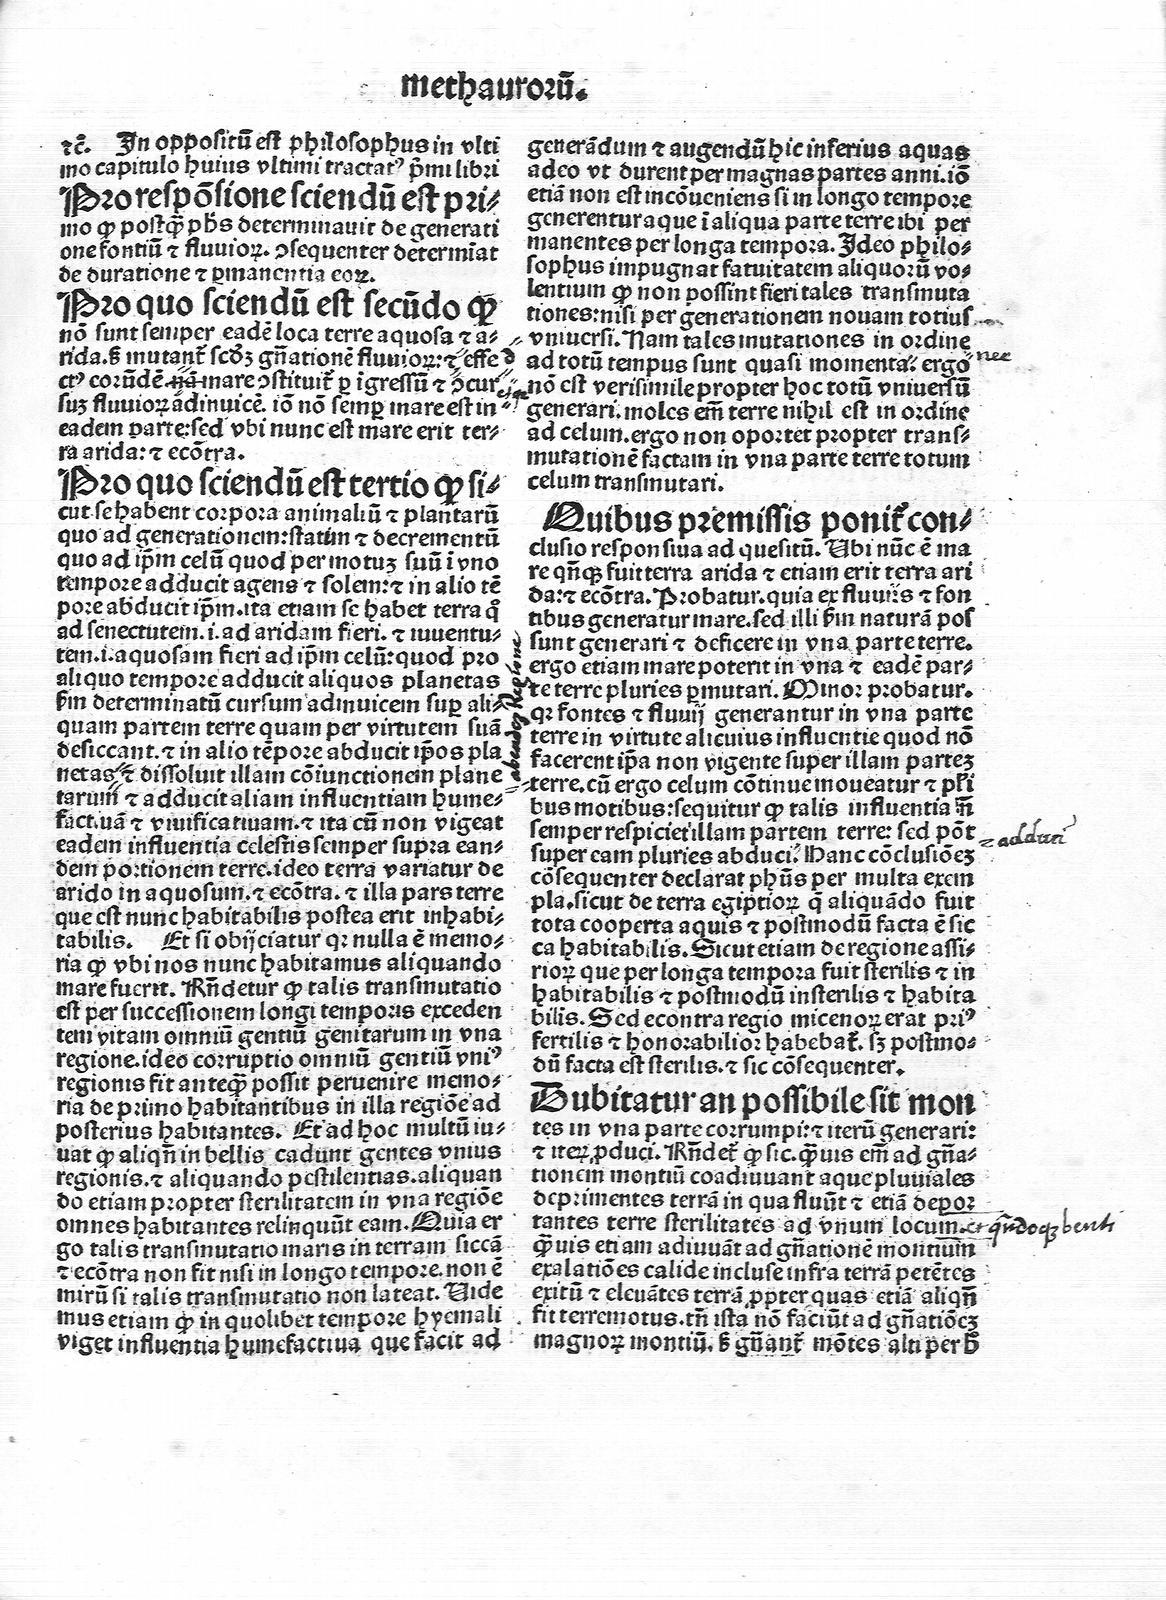 methaurorū.
⁊c̄. In oppositū est philosophus in vlti
mo capitulo huius vltimi tractatꝰ p̄mi libri
Pro respōsione sciendū est pri⸗
mo ꝙ postꝙ̄ ph̄s determinauit de generati
one fontiū ⁊ fluuioꝝ. ꝯsequenter determīat
de duratione ⁊ ꝑmanentia eoꝝ.
Pro quo sciendū est secūdo ꝙ
nō sunt semper eadē loca terre aquosa ⁊ a⸗
rida. s̄ mutant᷑ scd̄ꝫ gn̄ationē fluuioꝝ: ⁊ effe
ctꝰ corūdē mare ꝯstituit᷑ ꝑ īgressū ⁊ ꝯcur
suꝫ fluuioꝝ adinuicē. iō nō semꝑ mare est in
eadem parte: sed vbi nunc est mare erit ter⸗
ra arida: ⁊ ecōtra.
Pro quo sciendū est tertio ꝙ si⸗
cut se habent corpora animaliū ⁊ plantarū
quo ad generationem: statum ⁊ decrementū
quo ad ip̄m celū quod per motuꝫ suū ī vno
tempore adducit agens ⁊ solem: ⁊ in alio tē
pore abducit ip̄m. ita etiam se habet terra q̄
ad senectutem. i. ad aridam fieri. ⁊ iuuentu⸗
tem. i. aquosam fieri ad ip̄m celū: quod pro
aliquo tempore adducit aliquos planetas
s̄m determinatū cursum adinuicem suꝑ ali⸗
quam partem terre quam per virtutem suā
desiccant. ⁊ in alio tēpore abducit ip̄os pla
netas ⁊ dissoluit illam cōiunctionem plane
tarum ⁊ adducit aliam influentiam hume⸗
factiuā ⁊ viuificatiuam. ⁊ ita cū non vigeat
eadem influentia celestis semper supra ean⸗
dem portionem terre. ideo terra variatur de
arido in aquosum. ⁊ ecōtra. ⁊ illa pars terre
que est nunc habitabilis postea erit inhabi⸗
tabilis. Et si obijciatur qꝛ nulla ē memo⸗
ria ꝙ vbi nos nunc habitamus aliquando
mare fuerit. Rn̄detur ꝙ talis transmutatio
est per successionem longi temporis exceden
tem vitam omniū gentiū genitarum in vna
regione. ideo corruptio omniū gentiū vniꝰ
regionis fit anteꝙ̄ possit peruenire memo⸗
ria de primo habitantibus in illa regiōe ad
posterius habitantes. Et ad hoc multū iu⸗
uat ꝙ aliqn̄ in bellis cadunt gentes vnius
regionis. ⁊ aliquando pestilentias. aliquan
do etiam propter sterilitatem in vna regiōe
omnes habitantes relinquūt eam. Quia er
go talis transmutatio maris in terram siccā
⁊ ecōtra non fit nisi in longo tempore. non ē
mirū si talis transmutatio non lateat. Vide
mus etiam ꝙ in quolibet tempore hyemali
viget influentia humefactiua que facit ad
generādum ⁊ augendū hic inferius aquas
adeo vt durent per magnas partes anni. iō
etiā non est incōueniens si in longo tempore
generentur aque ī aliqua parte terre ibi per
manentes per longa tempora. Ideo philo⸗
sophus impugnat fatuitatem aliquorū vo⸗
lentium ꝙ non possint fieri tales transmuta
tiones: nisi per generationem nouam totius
vniuersi. Nam tales mutationes in ordine
ad totū tempus sunt quasi momenta. ergo
nec
nō est verisimile propter hoc totū vniuersū
generari. moles em̄ terre nihil est in ordine
ad celum. ergo non oportet propter trans⸗
mutationē factam in vna parte terre totum
celum transmutari.
Quibus premissis ponit᷑ con⸗
clusio responsiua ad quesitū. Vbi nūc ē ma
re qn̄qꝫ fuit terra arida ⁊ etiam erit terra ari
da: ⁊ ecōtra. Probatur. quia ex fluuiis ⁊ fon
tibus generatur mare. sed illi s̄m naturā pos
sunt generari ⁊ deficere in vna parte terre.
ergo etiam mare poterit in vna ⁊ eadē par⸗
te terre pluries ꝑmutari. Minor probatur.
qꝛ fontes ⁊ fluuij generantur in vna parte
terre in virtute alicuius influentie quod nō
facerent ip̄a non vigente super illam parteꝫ
terre. cū ergo celum cōtinue moueatur ⁊ pl̄i
bus motibus: sequitur ꝙ talis influentia n̄
semper respiciet illam partem terre: sed pōt
⁊ adduci
super eam pluries abduci. Hanc cōclusiōeꝫ
cōsequenter declarat ph̄us per multa exem
pla. sicut de terra egiptioꝝ q̄ aliquādo fuit
tota cooperta aquis ⁊ postmodū facta ē sic
ca habitabilis. Sicut etiam de regione assi⸗
rioꝝ que per longa tempora fuit sterilis ⁊ in
habitabilis ⁊ postmodū insterilis ⁊ habita
bilis. Sed econtra regio micenoꝝ erat priꝰ
fertilis ⁊ honorabilior habebat᷑. sꝫ postmo⸗
dū facta est sterilis. ⁊ sic cōsequenter.
Dubitatur an possibile sit mon
tes in vna parte corrumpi: ⁊ iterū generari:
⁊ iteꝝ ꝓduci. Rn̄det᷑ ꝙ sic. ꝙ̄uis em̄ ad gn̄a⸗
tionem montiū coadiuuant aque pluuiales
deprimentes terrā in qua fluūt ⁊ etiā depor
tantes terre sterilitates ad vnum locum.
ꝙ̄uis etiam adiuuāt ad gn̄ationē montium
exalatiōes calide incluse infra terrā petētes
exitū ⁊ eleuātes terrā ꝓpter quas etiā aliqn̄
fit terremotus. tn̄ ista nō faciūt ad gn̄atiōeꝫ
magnoꝝ montiū. s̄ gn̄ant᷑ mōtes alti per h̄